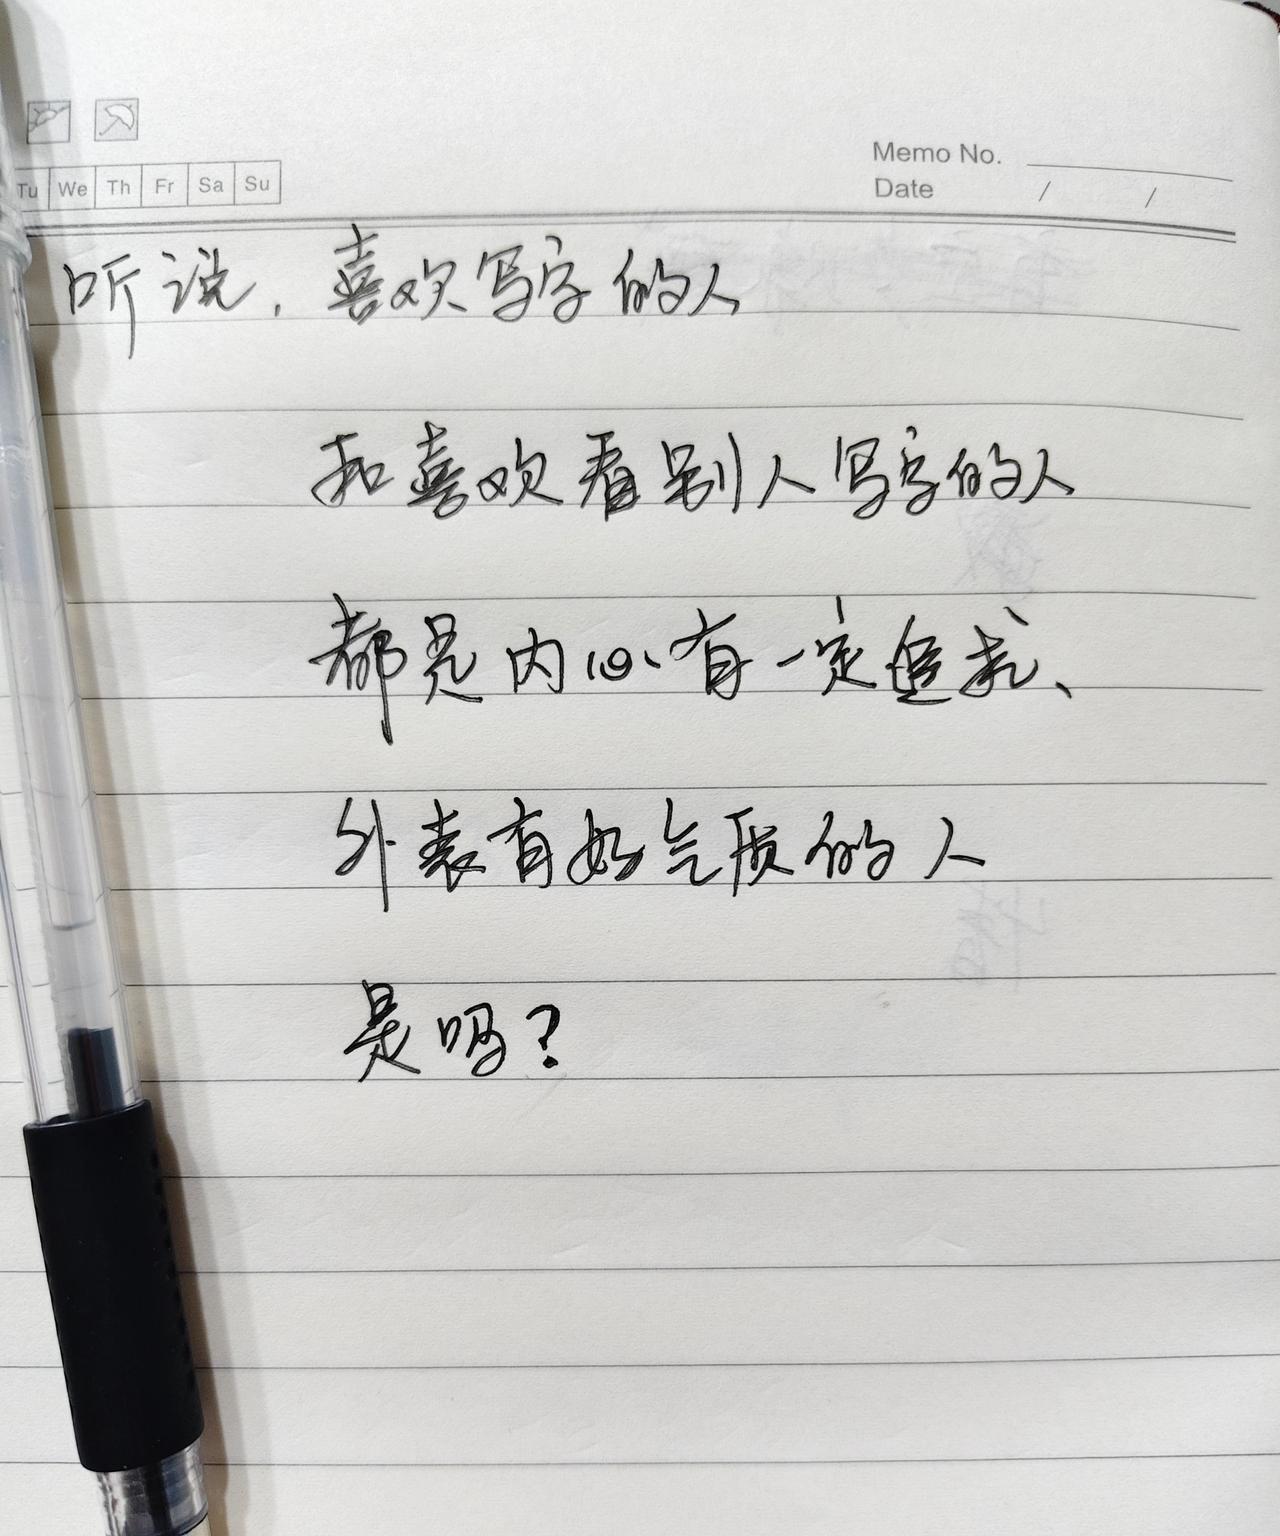 Memo No.
Tu We Th Fr Sa Su
Date / /
听说，喜欢写字的人
和喜欢看别人写字的人
都是内心有一定追求、
外表有好气质的人
是吗？